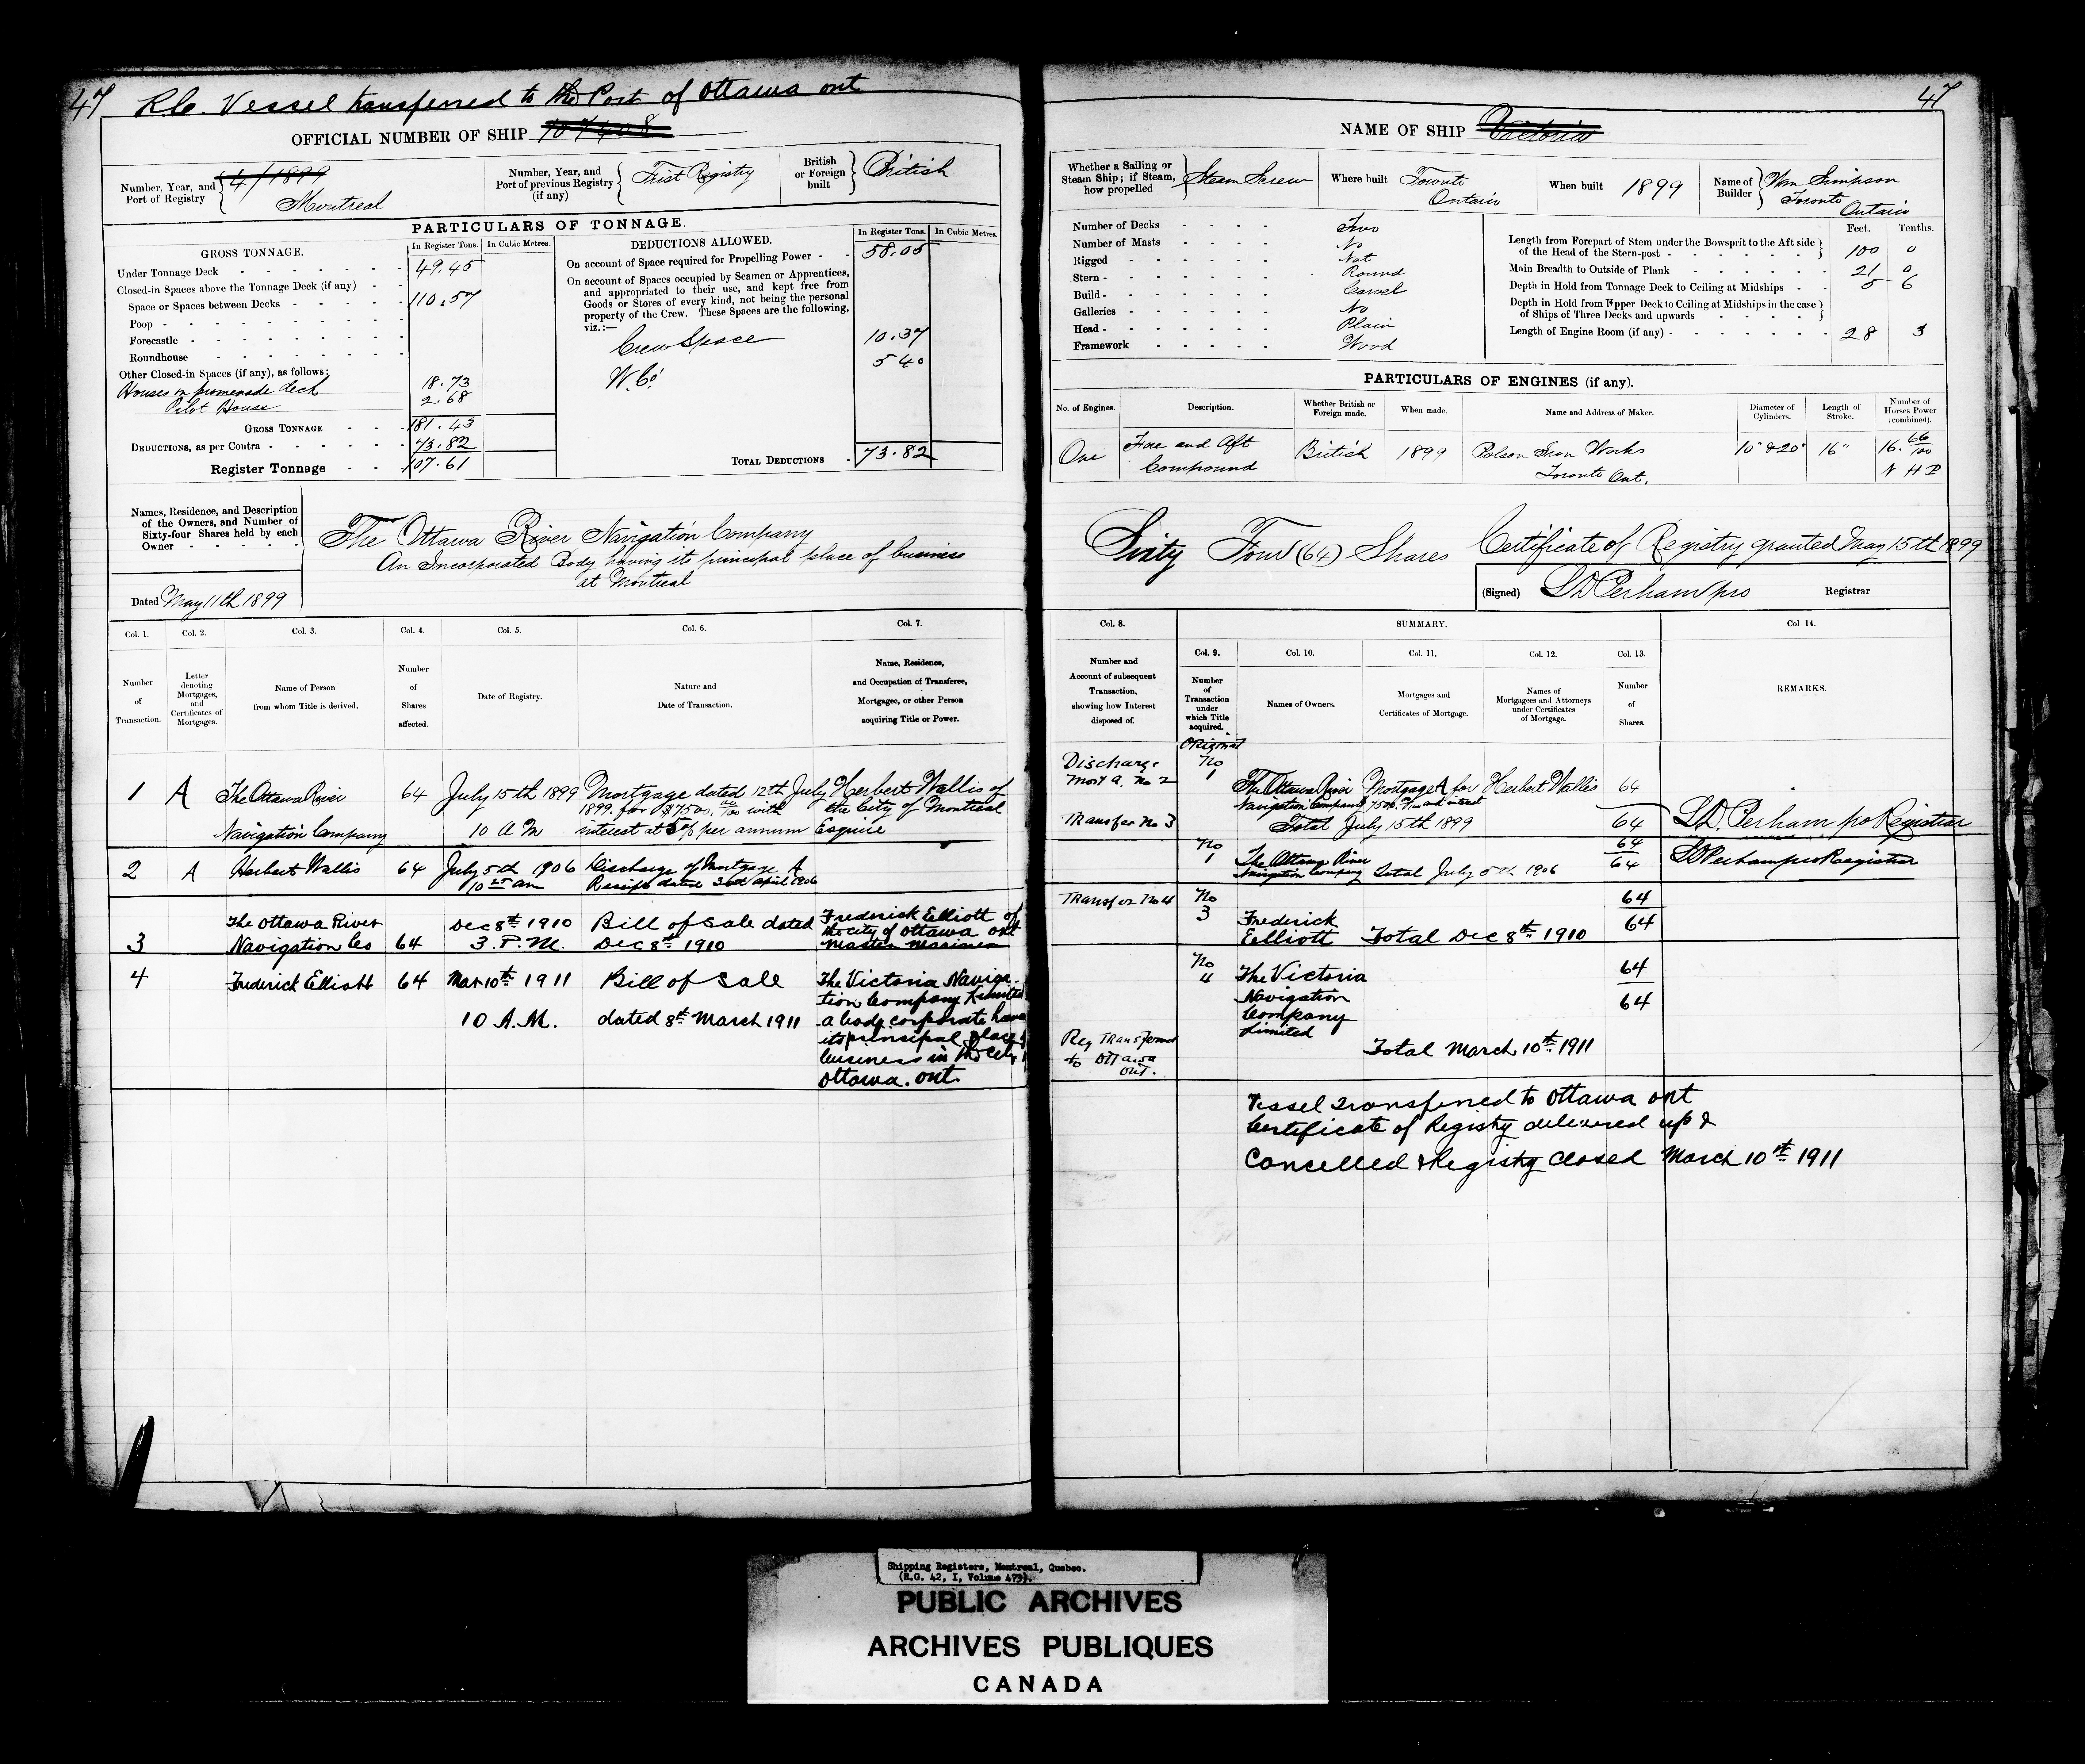 47 R.C. Vessel transferred to the Port of Ottawa ont
OFFICIAL NUMBER OF SHIP 107408
Number, Year, and Port of Registry 4/1899 Montreal
Number, Year, and Port of previous Registry (if any) First Registry
British or Foreign built British
PARTICULARS OF TONNAGE.
GROSS TONNAGE. In Register Tons. In Cubic Metres.
Under Tonnage Deck 49.45
Closed-in Spaces above the Tonnage Deck (if any)
Space or Spaces between Decks 110.57
Poop
Forecastle
Roundhouse
Other Closed-in Spaces (if any), as follows:
Houses on promenade deck 18.73
Pilot House 2.68
GROSS TONNAGE 181.43
DEDUCTIONS, as per Contra 73.82
Register Tonnage 107.61
DEDUCTIONS ALLOWED. In Register Tons. In Cubic Metres.
On account of Space required for Propelling Power 58.05
On account of Spaces occupied by Seamen or Apprentices,
and appropriated to their use, and kept free from
Goods or Stores of every kind, not being the personal
property of the Crew. These Spaces are the following,
viz.:—
Crew Space 10.37
W.C.s 5 40
TOTAL DEDUCTIONS 73.82
Names, Residence, and Description
of the Owners, and Number of
Sixty-four Shares held by each
Owner
The Ottawa River Navigation Company
An Incorporated Body having its principal place of business
at Montreal
Dated May 11th 1899
Col. 1. Col. 2. Col. 3. Col. 4. Col. 5. Col. 6. Col. 7.
Number of Transaction.
Letter denoting Mortgages, and Certificates of Mortgages.
Name of Person from whom Title is derived.
Number of Shares affected.
Date of Registry.
Nature and Date of Transaction.
Name, Residence, and Occupation of Transferee, Mortgagee, or other Person acquiring Title or Power.
1 A The Ottawa River Navigation Company 64 July 15th 1899 10 A M
Mortgage dated 12th July 1899. for $7500. 00/100 with interest at 5% per annum
Herbert Wallis of the City of Montreal Esquire
2 A Herbert Wallis 64 July 5th 1906 10 25 am
Discharge of Mortgage A
Receipt dated 30th April 1906
3 The Ottawa River Navigation Co 64 Dec 8th 1910 3. P.M.
Bill of Sale dated Dec 8th 1910
Frederick Elliott of the city of Ottawa ont Master Mariner
4 Frederick Elliott 64 Mar 10th 1911 10 A.M.
Bill of Sale dated 8th March 1911
The Victoria Naviga-
tion Company Limited
a body corporate having
its principal place of
business in the City of
Ottawa. ont.
47
NAME OF SHIP Victoria
Whether a Sailing or Steam Ship; if Steam, how propelled Steam Screw
Where built Toronto Ontario
When built 1899
Name of Builder Wm Simpson Toronto Ontario
Number of Decks Two
Number of Masts No
Rigged Not
Stern Round
Build Carvel
Galleries No
Head Plain
Framework Wood
Feet. Tenths.
Length from Forepart of Stem under the Bowsprit to the Aft side
of the Head of the Stern-post 100 0
Main Breadth to Outside of Plank 21 0
Depth in Hold from Tonnage Deck to Ceiling at Midships 5 6
Depth in Hold from Upper Deck to Ceiling at Midships in the case
of Ships of Three Decks and upwards
Length of Engine Room (if any) 28 3
PARTICULARS OF ENGINES (if any).
No. of Engines. Description. Whether British or Foreign made. When made. Name and Address of Maker. Diameter of Cylinders. Length of Stroke. Number of Horses Power (combined).
One Fore and Aft Compound British 1899 Polson Iron Works Toronto Ont. 10" & 20" 16" 16. 66/100 N H P
Sixty Four (64) Shares Certificate of Registry granted May 15th 1899
(Signed) L D Perham pro Registrar
Col. 8. SUMMARY. Col 14.
Col. 9. Col. 10. Col. 11. Col. 12. Col. 13.
Number and Account of subsequent Transaction, showing how Interest disposed of.
Number of Transaction under which Title acquired.
Names of Owners.
Mortgages and Certificates of Mortgage.
Names of Mortgagees and Attorneys under Certificates of Mortgage.
Number of Shares.
REMARKS.
Discharge Mort a. No 2
Transfer No 3
Original No 1 The Ottawa River Navigation Company Mortgage A for 7500. 00/100 and interest Herbert Wallis 64
Total July 15th 1899 64 L.D. Perham pro Registrar
No 1 The Ottawa River Navigation Company Total July 5th 1906 64 64 L D Perham pro Registrar
Transfer No 4 No 3 Frederick Elliott Total Dec 8th 1910 64 64
No 4 The Victoria Navigation Company Limited 64 64
Reg Transferred to Ottawa ont.
Total March 10th 1911
Vessel transferred to Ottawa ont
Certificate of Registry delivered up &
Cancelled & Registry Closed March 10th 1911
Shipping Registers, Montreal, Quebec.
(R.G. 42, I, Volume 473).
PUBLIC ARCHIVES
ARCHIVES PUBLIQUES
CANADA